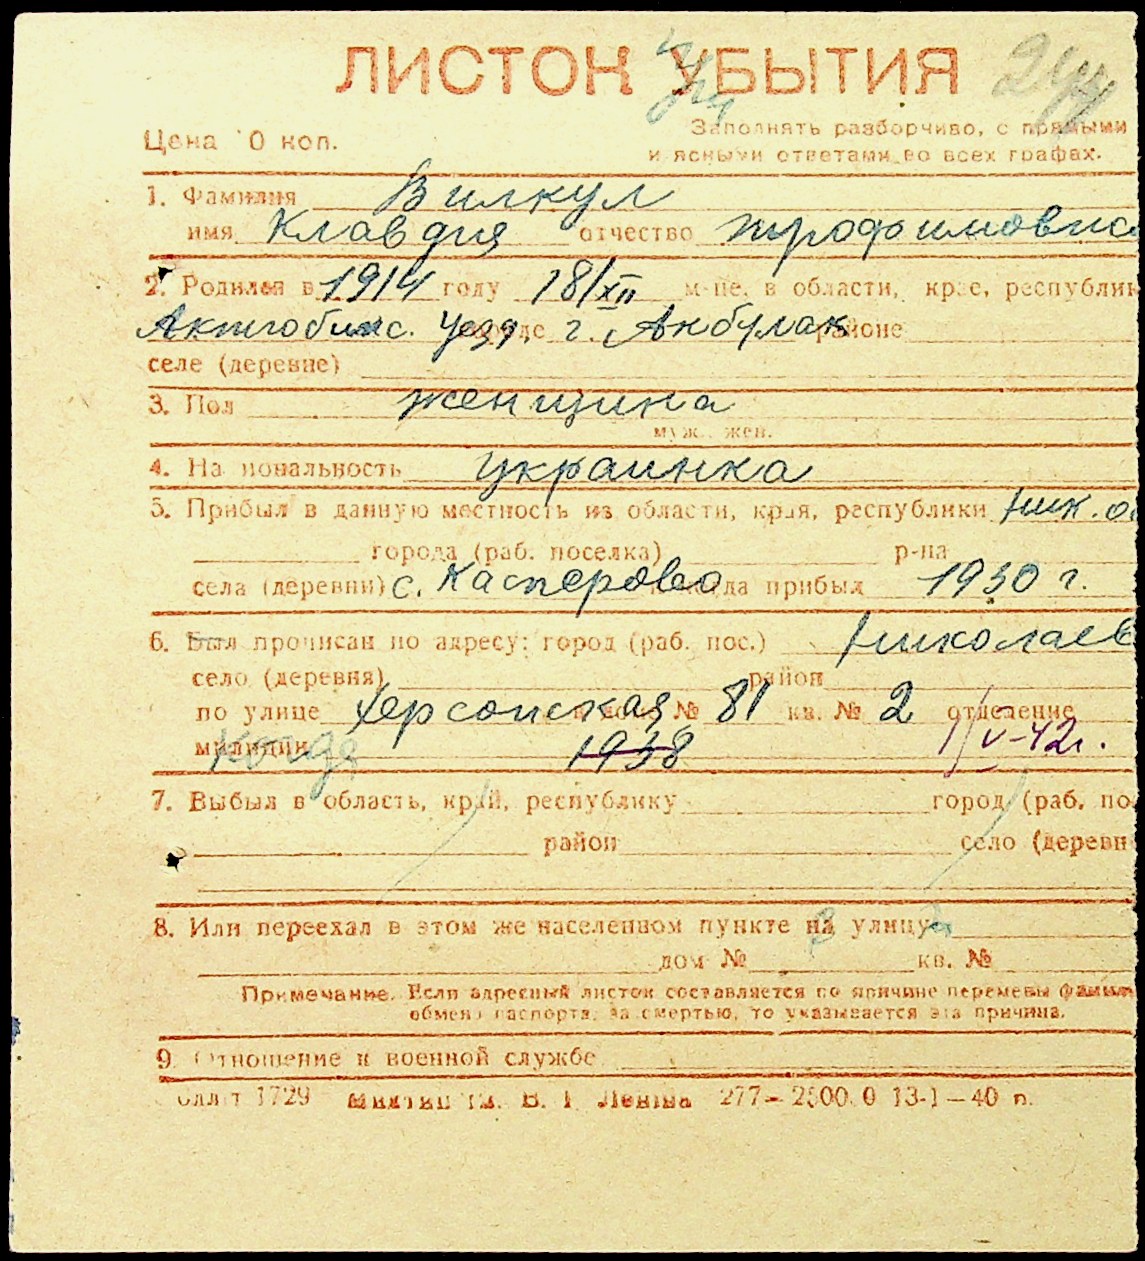 ЛИСТОК УБЫТИЯ
Цена 10 коп.
Заполнять разборчиво, с прямыми
и ясными ответами во всех графах.
1. Фамилия Вилкул
имя Клавдия отчество трофимовна
2. Родился в 1914 году 18/XII м-це, в области, крае, республик
Актюбинс. уезд, г. Акбулак районе
селе (деревне)
3. Пол женщина
муж., жен.
4. Национальность украинка
5. Прибыл в данную местность из области, края, республики Ник. об
города (раб. поселка) р-на
села (деревни) с. Касперово когда прибыл 1930 г.
6. Был прописан по адресу: город (раб. пос.) Николаев
село (деревня) район
по улице Херсонская дом № 81 кв. № 2 отделение
милиции Когда 1938 1/V-42г.
7. Выбыл в область, край, республику город (раб. по
район село (деревн
8. Или переехал в этом же населенном пункте на улицу
дом № кв. №
Примечание. Если адресный листок составляется по причине перемены фамил
обмена паспорта, за смертью, то указывается эта причина.
9. Отношение к военной службе
1729 им. В. И Ленина 277—2500.0 13-1—40 п.